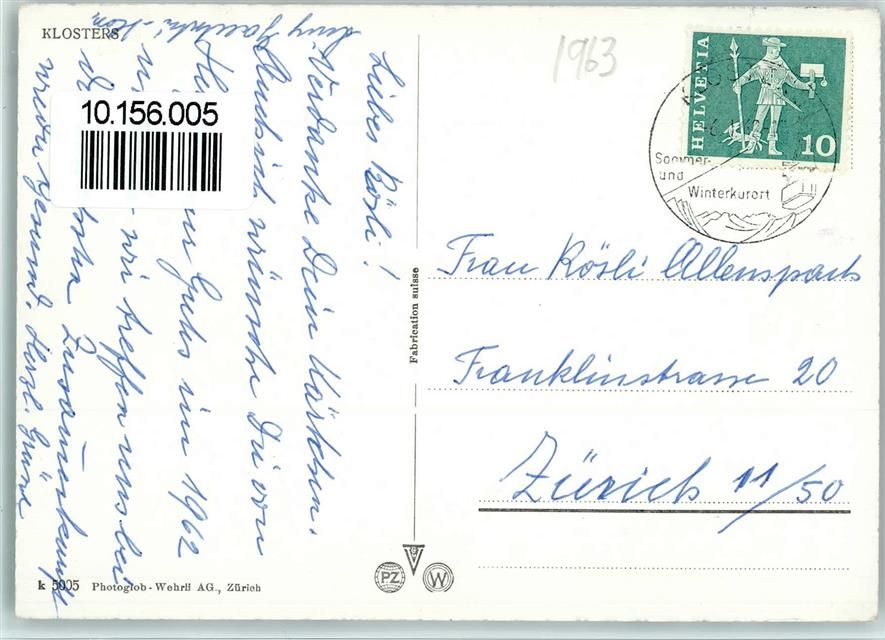 KLOSTERS
Liebes Rösli!
Verdanke Dein Kärtchen.
Auch ich wünsche Dir von
Gutes im 1962
wir treffen uns bei
Zusammenkunft
wieder gesund. Herzl. Grüsse
10.156.005
k 5005 Photoglob-Wehrli AG., Zürich
Fabrication suisse
PZ
W
1963
HELVETIA
10
Sommer-
und
Winterkurort
Frau Rösli Allenspach
Franklinstrasse 20
Zürich 11/50